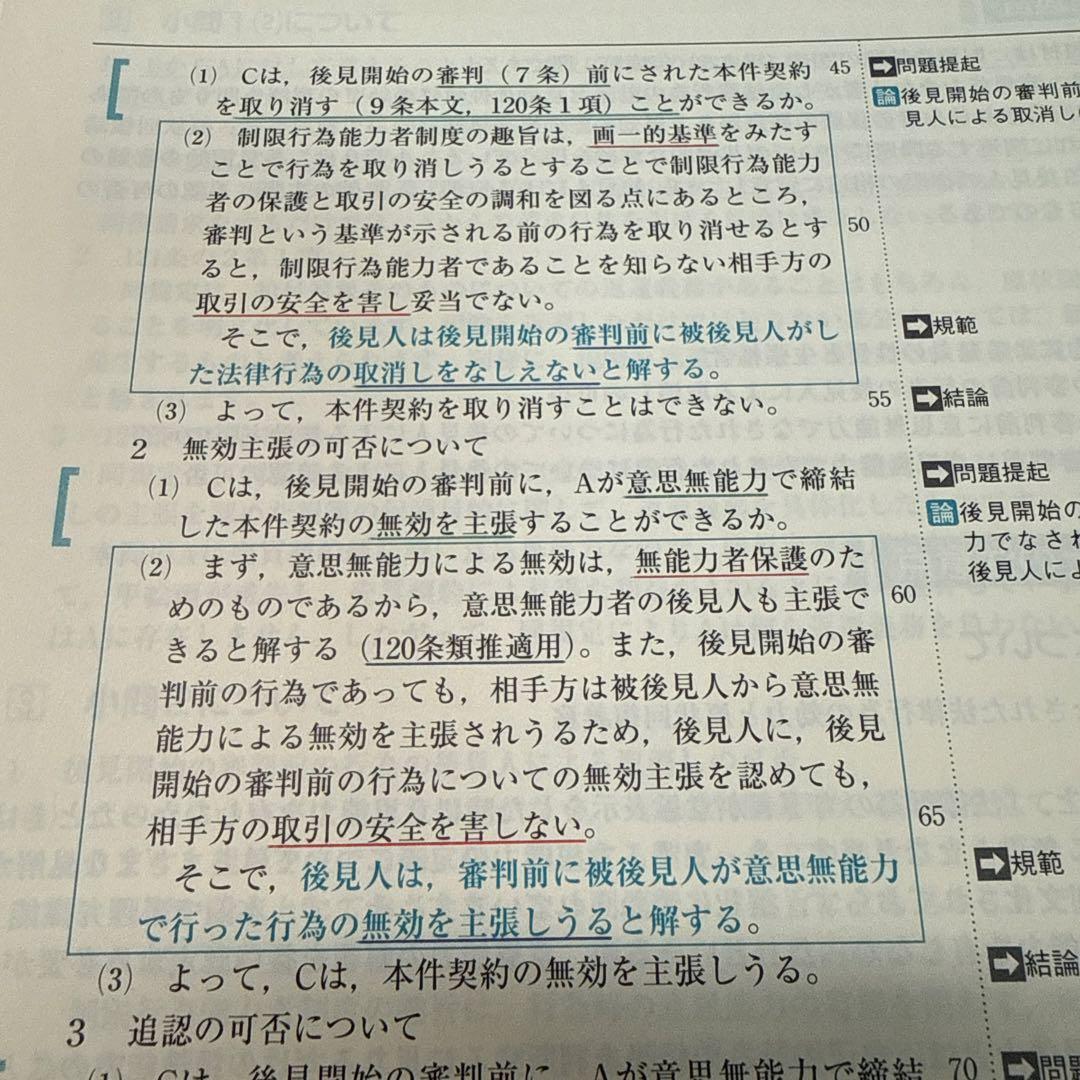 (1) Cは，後見開始の審判（7条）前にされた本件契約 45 ➡問題提起
を取り消す（9条本文，120条1項）ことができるか。 論 後見開始の審判前
(2) 制限行為能力者制度の趣旨は，画一的基準をみたす 見人による取消し
ことで行為を取り消しうるとすることで制限行為能力
者の保護と取引の安全の調和を図る点にあるところ，
審判という基準が示される前の行為を取り消せるとす 50
ると，制限行為能力者であることを知らない相手方の
取引の安全を害し妥当でない。
そこで，後見人は後見開始の審判前に被後見人がし ➡規範
た法律行為の取消しをなしえないと解する。
(3) よって，本件契約を取り消すことはできない。 55 ➡結論
2 無効主張の可否について
(1) Cは，後見開始の審判前に，Aが意思無能力で締結 ➡問題提起
した本件契約の無効を主張することができるか。 論 後見開始の
(2) まず，意思無能力による無効は，無能力者保護のた 力でなされ
めのものであるから，意思無能力者の後見人も主張で 60 後見人によ
きると解する（120条類推適用）。また，後見開始の審
判前の行為であっても，相手方は被後見人から意思無
能力による無効を主張されうるため，後見人に，後見
開始の審判前の行為についての無効主張を認めても，
相手方の取引の安全を害しない。 65
そこで，後見人は，審判前に被後見人が意思無能力 ➡規範
で行った行為の無効を主張しうると解する。
(3) よって，Cは，本件契約の無効を主張しうる。 ➡結論
3 追認の可否について
(1) Cは，後見開始の審判前に，Aが意思無能力で締結 70 ➡問題